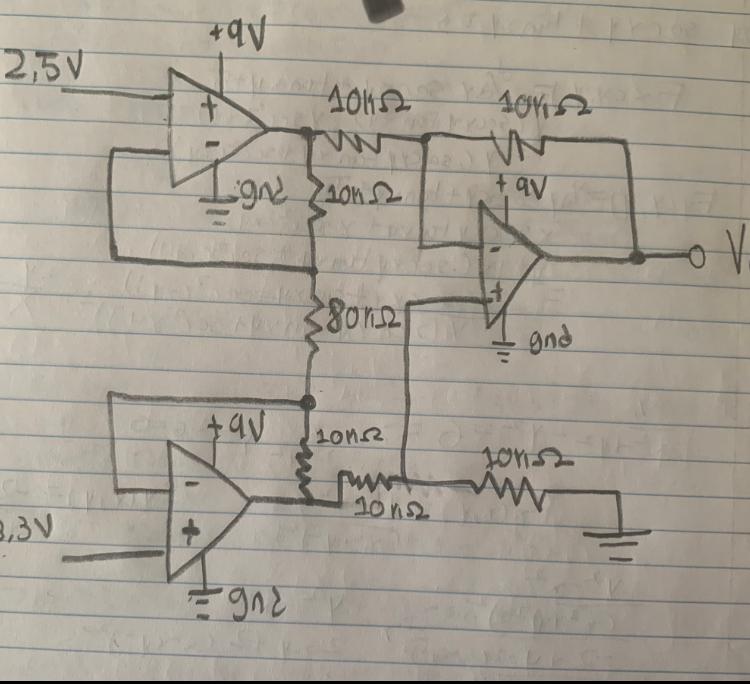 +9V
2,5V
10kΩ
10kΩ
+
-
gnd
10kΩ
+9V
-
V
+
80kΩ
gnd
+9V
10kΩ
10kΩ
-
10kΩ
,3V
+
gnd